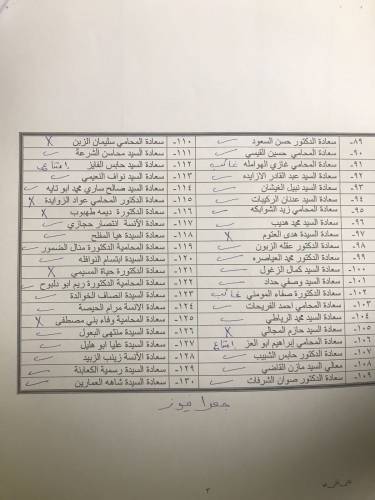 ٨٩- سعادة الدكتور حسن السعود
٩٠- سعادة المحامي حسين القيسي
٩١- سعادة المحامي غازي الهوامله غائب
٩٢- سعادة السيد عبد القادر الازايده
٩٣- سعادة السيد نبيل الغيشان
٩٤- سعادة السيد عدنان الركيبات
٩٥- سعادة المحامي زيد الشوابكه
٩٦- سعادة السيد محمد هديب
٩٧- سعادة السيدة هدى العتوم X
٩٨- سعادة الدكتور عقله الزبون
٩٩- سعادة الدكتور محمد العياصره
١٠٠- سعادة السيد كمال الزغول
١٠١- سعادة السيد وصفي حداد
١٠٢- سعادة الدكتور صفاء المومني غائب
١٠٣- سعادة المحامي احمد الفريحات
١٠٤- سعادة السيد محمد الرياطي
١٠٥- سعادة السيد حازم المجالي X
١٠٦- سعادة المحامي إبراهيم أبو العز امتناع
١٠٧- سعادة الدكتور حابس الشبيب
١٠٨- معالي السيد مازن القاضي
١٠٩- سعادة الدكتور صوان الشرفات
١١٠- سعادة المحامي سليمان الزبن X
١١١- سعادة السيد محاسن الشرعة
١١٢- سعادة السيد حابس الفايز امتناع
١١٣- سعادة السيد نواف النعيمي
١١٤- سعادة السيد صالح ساري محمد ابو تايه
١١٥- سعادة الدكتور المحامي عواد الزوايدة X
١١٦- سعادة الدكتورة ديمه طهبوب X
١١٧- سعادة الآنسة انتصار حجازي
١١٨- سعادة السيدة هيا المفلح
١١٩- سعادة المحامية الدكتورة منال الضمور
١٢٠- سعادة السيدة ابتسام النوافله
١٢١- سعادة الدكتورة حياة المسيمي X
١٢٢- سعادة المحامية الدكتورة ريم ابو دلبوح
١٢٣- سعادة السيدة انصاف الخوالدة
١٢٤- سعادة الآنسة مرام الحيصة
١٢٥- سعادة المحامية وفاء بني مصطفى X
١٢٦- سعادة السيدة منتهى البعول
١٢٧- سعادة السيدة عليا ابو هليل
١٢٨- سعادة الآنسة زينب الزبيد
١٢٩- سعادة السيدة رسمية الكعابنة
١٣٠- سعادة السيدة شاهه العمارين
٣